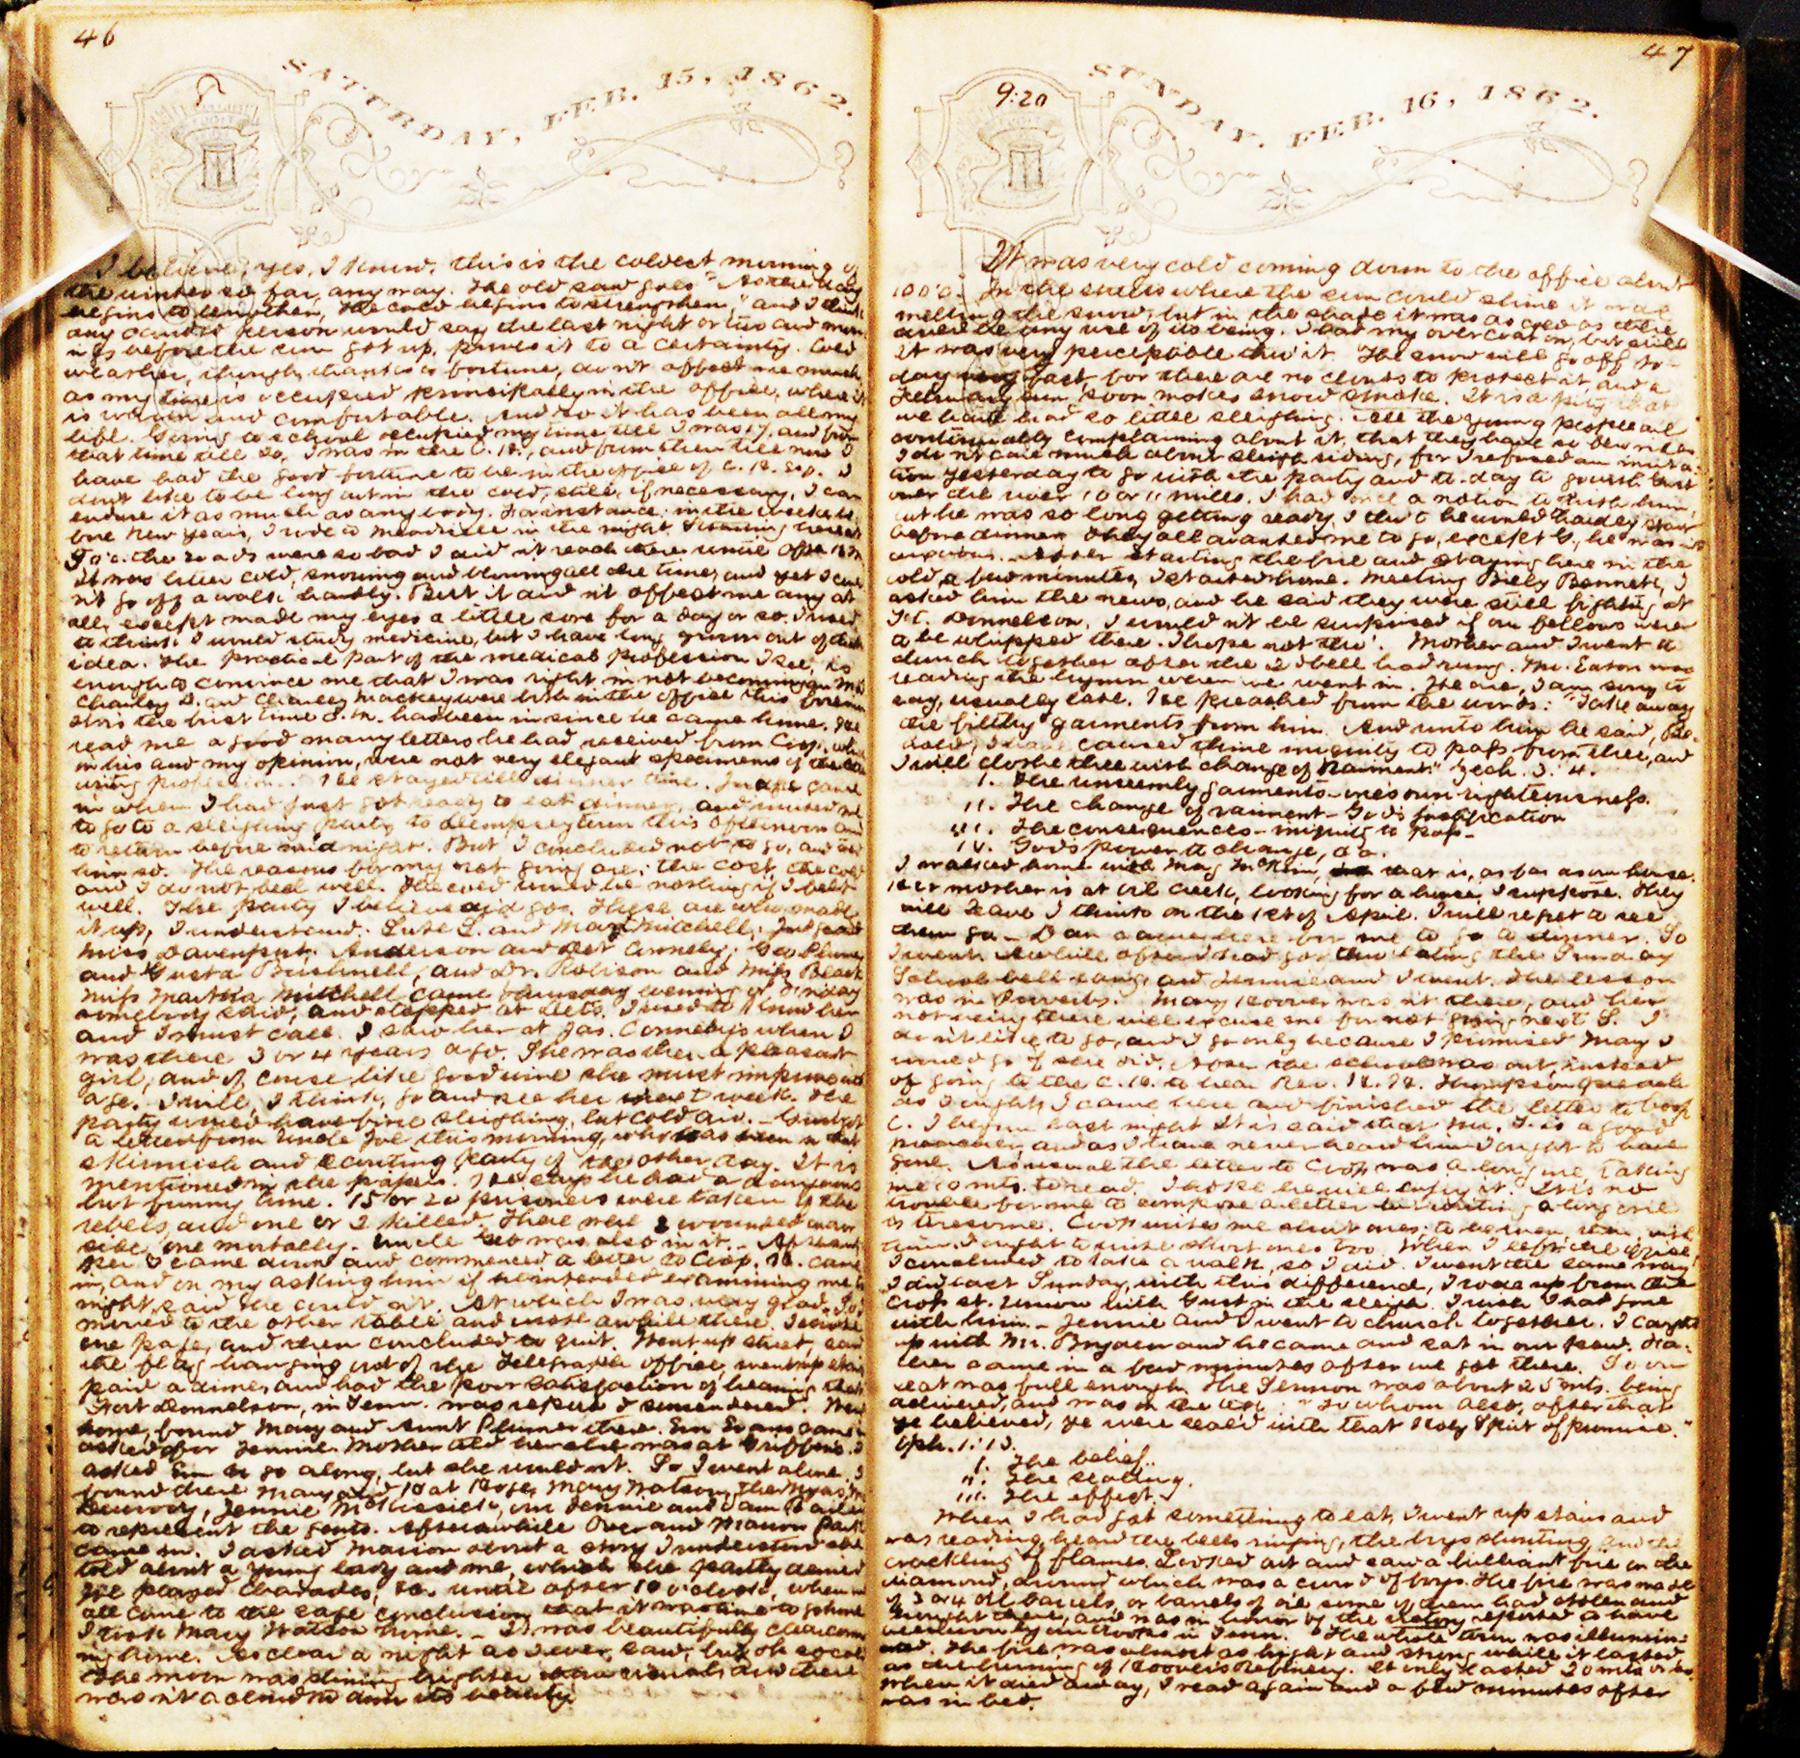 46
SATURDAY, FEB. 15, 1862.
I believe, yes, I know, this is the coldest morning of
the winter so far, any way. The old saw goes "As the days
begins to lengthen, the cold begins to strengthen," and I think
any candid person would say the last night or two and morn-
ings before the sun got up, proves it to a certainty. Cold
weather, though, thanks to fortune, don't affect me much,
as my time is occupied principally in the office, where it
is warm and comfortable. And so it has been all my
life. Going to school occupied my time till I was 17, and from
that time till 20, I was in the C. H., and from then till now I
have had the good fortune to be in the office of C. R. Esp. I
don't like to be long out in the cold, still, if necessary, I can
endure it as much as any body. For instance: in the week be-
fore New Years, I rode to Meadville in the night & starting here at
o'c. the roads were so bad I did n't reach there until after
It was bitter cold, snowing and blowing all the time, and yet I could
n't go off a walk hardly. But it did n't affect me any at
all, except made my eyes a little sore for a day or so. I used
to think I would study medicine, but I have long grown out of that
idea. The practical part of the medical profession I see, is
enough to convince me that I was right in not becoming an M.D.
Charley D. and Charley Mackey were both in the office this forenoon
It is the first time C. M. has been in since he came home. He
read me a good many letters he had received from Crop, which
in his and my opinion, were not very elegant specimens of the
writing profession. He stayed till dinner time. came
in when I had just got ready to eat dinner, and invited me
to go to a sleighing party to Dempseytown this afternoon and
to return before midnight. But I concluded not to go, and told
him so. The reasons for my not going are: the cost, the cold
and I do not feel well. The cold would be nothing if I felt
well. The party I believe did go. These are who made
it up, I understand: Luse L. and Mary Mitchell;
Miss Davenport. Anderson and Connely; Geo Plumer
and Gusta Bushnell, and Dr. Robison and Miss Black
Miss Martha Mitchell came Thursday evening or Friday
somebody said, and stopped at Let's. I used to know her
and I must call. I saw her at Jas. Connely's when I
was there 3 or 4 years ago. She was then a pleasant
girl, and of course, like good wine she must improve with
age. I will, I think, go and see her next week. The
party would have fine sleighing, but cold air. - Gust got
a letter from Uncle Joe this morning, who was in that
skirmish and scouting party of the other day. It is
mentioned in the papers. He says he had a dangerous
but funny time. 15 or 20 prisoners were taken of the
rebels, and one or 2 killed. There were 2 wounded on our
side, one mortally. Uncle Geo was also in it. -
I came down and commenced a letter to Crop. H. came
in, and on my asking him if he intended examining me to
night, said he could n't. At which I was very glad. So I
moved to the other table and wrote awhile there. I wrote
one page, and then concluded to quit. Went up street, saw
the flag hanging out of the Telegraph office, went up stairs
paid a dime, and had the poor satisfaction of hearing that
Fort Donnelson, in Tenn. was reported surrendered. Went
home, found Mary and Aunt Plumer there. Em Evans came in
asked for Jennie. Mother told her she was at Griffin's. I
asked Em to go along, but she would n't. So I went alone. I
found there Mary and Kat Hoge, Mary Watson,
Jennie McKissick, our Jennie and Sam
to represent the gents. Afterawhile Over and Marion Park
came in. I asked Marion about a story I understood she
told about a young lady and me, which she flatly denied
We played charades, &c. until after 10 o'clock, when we
all came to the safe conclusion that it was time to go home
I took Mary Watson home. - It was beautifully clear com-
ing home. As clear a night as I ever saw, but oh so cold
The moon was shining brighter than usual, and there
was n't a cloud to dim its beauty.
47
9:20
SUNDAY, FEB. 16, 1862.
It was very cold coming down to the office about
10 o'c. In the streets where the sun could shine it was
melting the snow, but in the shade it was as cold as there
could be any use of its being. I had my overcoat on, but still
it was very perceptible thro' it. The snow will go off to-
day very fast, for there are no clouds to protect it, and a
February sun soon makes snow smoke. It is a pity that
we have had so little sleighing. All the young people are
continually complaining about it, that they have so few rides.
I do n't care much about sleigh riding, for I refused an invita-
tion yesterday to go with the party and to-day to go with Gust
over the river 10 or 11 miles. I had once a notion to with him,
but he was so long getting ready, I tho't he would hardly start
before dinner. They all wanted me to go, except G., he was
anxious. After starting the fire and staying here in the
cold a few minutes, I started home. Meeting Billy Bennett, I
asked him the news, and he said they were still fighting at
Ft. Donnelson. I would n't be surprised if our fellows were
to be whipped there. I hope not tho'. Mother and I went to
church together after the 2d bell had rung. Mr. Eaton was
reading the hymn when we went in. We are, I am sorry to
say, usually late. He preached from the words: "Take away
the filthy garments from him. And unto him he said, Be-
hold, I have caused thine iniquity to pass from thee, and
I will clothe thee with change of Raiment." Zech. 3. 4.
I. The unseemly garments - ones own righteousness.
II. The change of raiment - God's Justification
III. The consequences - iniquity to pass -
IV. God's power to change, &c.
I walked home with Mag McKim, that is, as far as our house.
Her mother is at Oil Creek, looking for a house I suppose. They
will leave I think on the 1st of April. I will regret to see
them go. - Dan came here for me to go to dinner. So
I went. Awhile after I had got thro' eating the Sunday
School bell rang, and Jennie and I went. The lesson
was in Proverbs. Mary Hoover was n't there, and her
not being there will excuse me for not going next S. I
do n't like to go, and I go only because I promised Mary I
would go if she did. After the school was out, instead
of going to the C. H. to hear Rev. Thompson preach
as I ought, I came here and finished the letter to Crop
C. I begun last night It is said that Mr. T. is a good
preacher, and as I have never heard him I ought to have
gone. As usual the letter to Crop was a long one, taking
me 10 mts. to read. I hope he will enjoy it. It is no
trouble for me to compose a letter but writing a long one
is tiresome. Crop writes me short ones; to be even, then, with
him I ought to write short ones too. When I left the office
I concluded to take a walk, so I did. I went the same way
I did last Sunday, with this difference, I rode up from the
Crop st. with Gust in the sleigh. I wish I had gone
with him. - Jennie and I went to church together. I caught
up with Mr. Bryden and he came and sat in our pew. Fa-
ther came in a few minutes after we got there. So our
seat was full enough. The Sermon was about 25 mts. being
delivered, and was on the text: "In whom also, after that
ye believed, ye were sealed with that Holy Spirit of promise."
Eph. 1:13.
I. The belief.
II. The sealing.
III. The effect.
When I had got something to eat, I went up stairs and
was reading, heard the bells ringing, the boys shouting and the
crackling of flames. Looked out and saw a brilliant fire on the
diamond, around which was a crowd of boys. The fire was made
of 3 or 4 oil barrels, or barrels of oil some of them had stolen and
brought there, and was in honor of the victory reported to have
been won by our troops in Tenn. The whole town was illumin-
ated. The fire was almost as bright and strong while it lasted
as the burning of Hoover's Refinery. It only lasted 20 mts or so
When it died away, I read again and a few minutes after
was in bed.